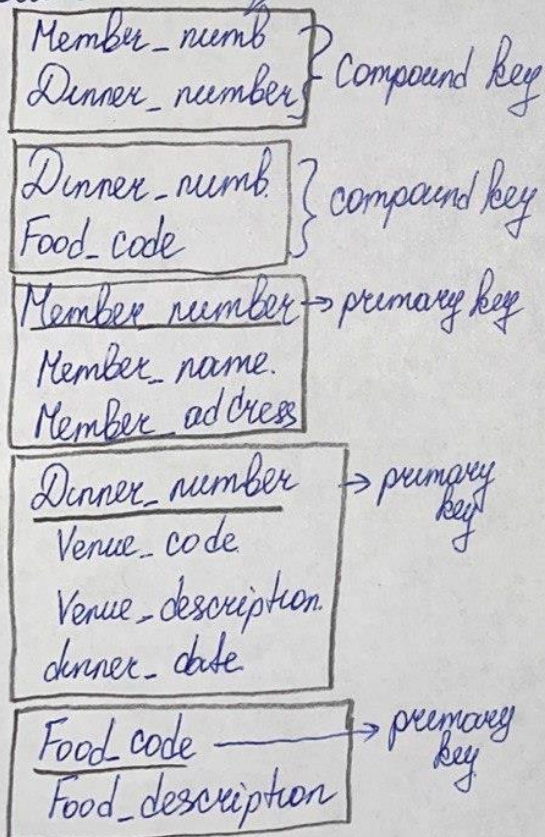 Member_numb
Dinner_number
} compound key
Dinner_numb.
Food_code
} compound key
Member_number → primary key
Member_name.
Member_address
Dinner_number → primary key
Venue_code
Venue_description.
dinner_date
Food_code → primary key
Food_description